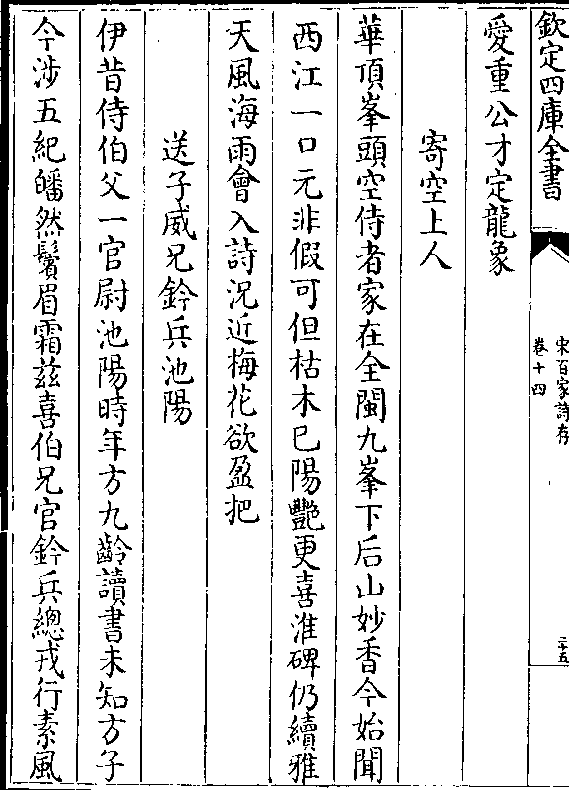 欽定四庫全書
宋百家詩存
卷十四
二十五
愛重公才定龍象
寄空上人
華頂峯頭空侍者家在全閩九峯下后山妙香今始聞
西江一口元非假可但枯木已陽艷更喜淮碑仍續雅
天風海雨會入詩況近梅花欲盈把
送子威兄鈐兵池陽
伊昔侍伯父一官尉池陽時年方九齡讀書未知方子
今涉五紀皤然鬢眉霜兹喜伯兄官鈐兵總戎行素風